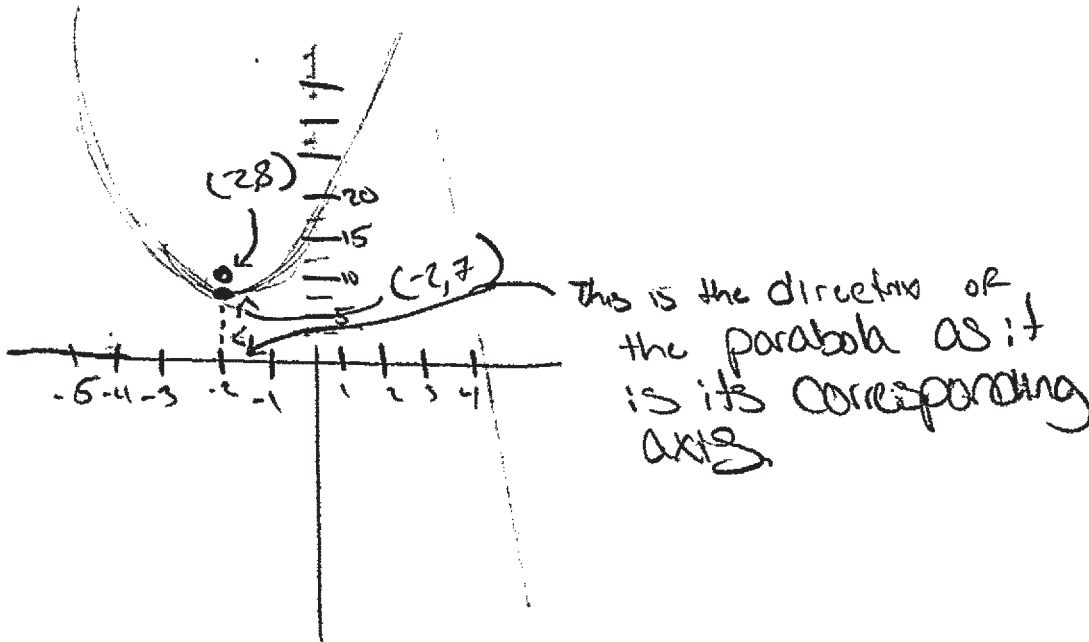 (-28)
20
15
10
5
(-2,7)
-5 -4 -3 -2 -1 1 2 3 4
This is the directrix of
the parabola as it
is its corresponding
axis